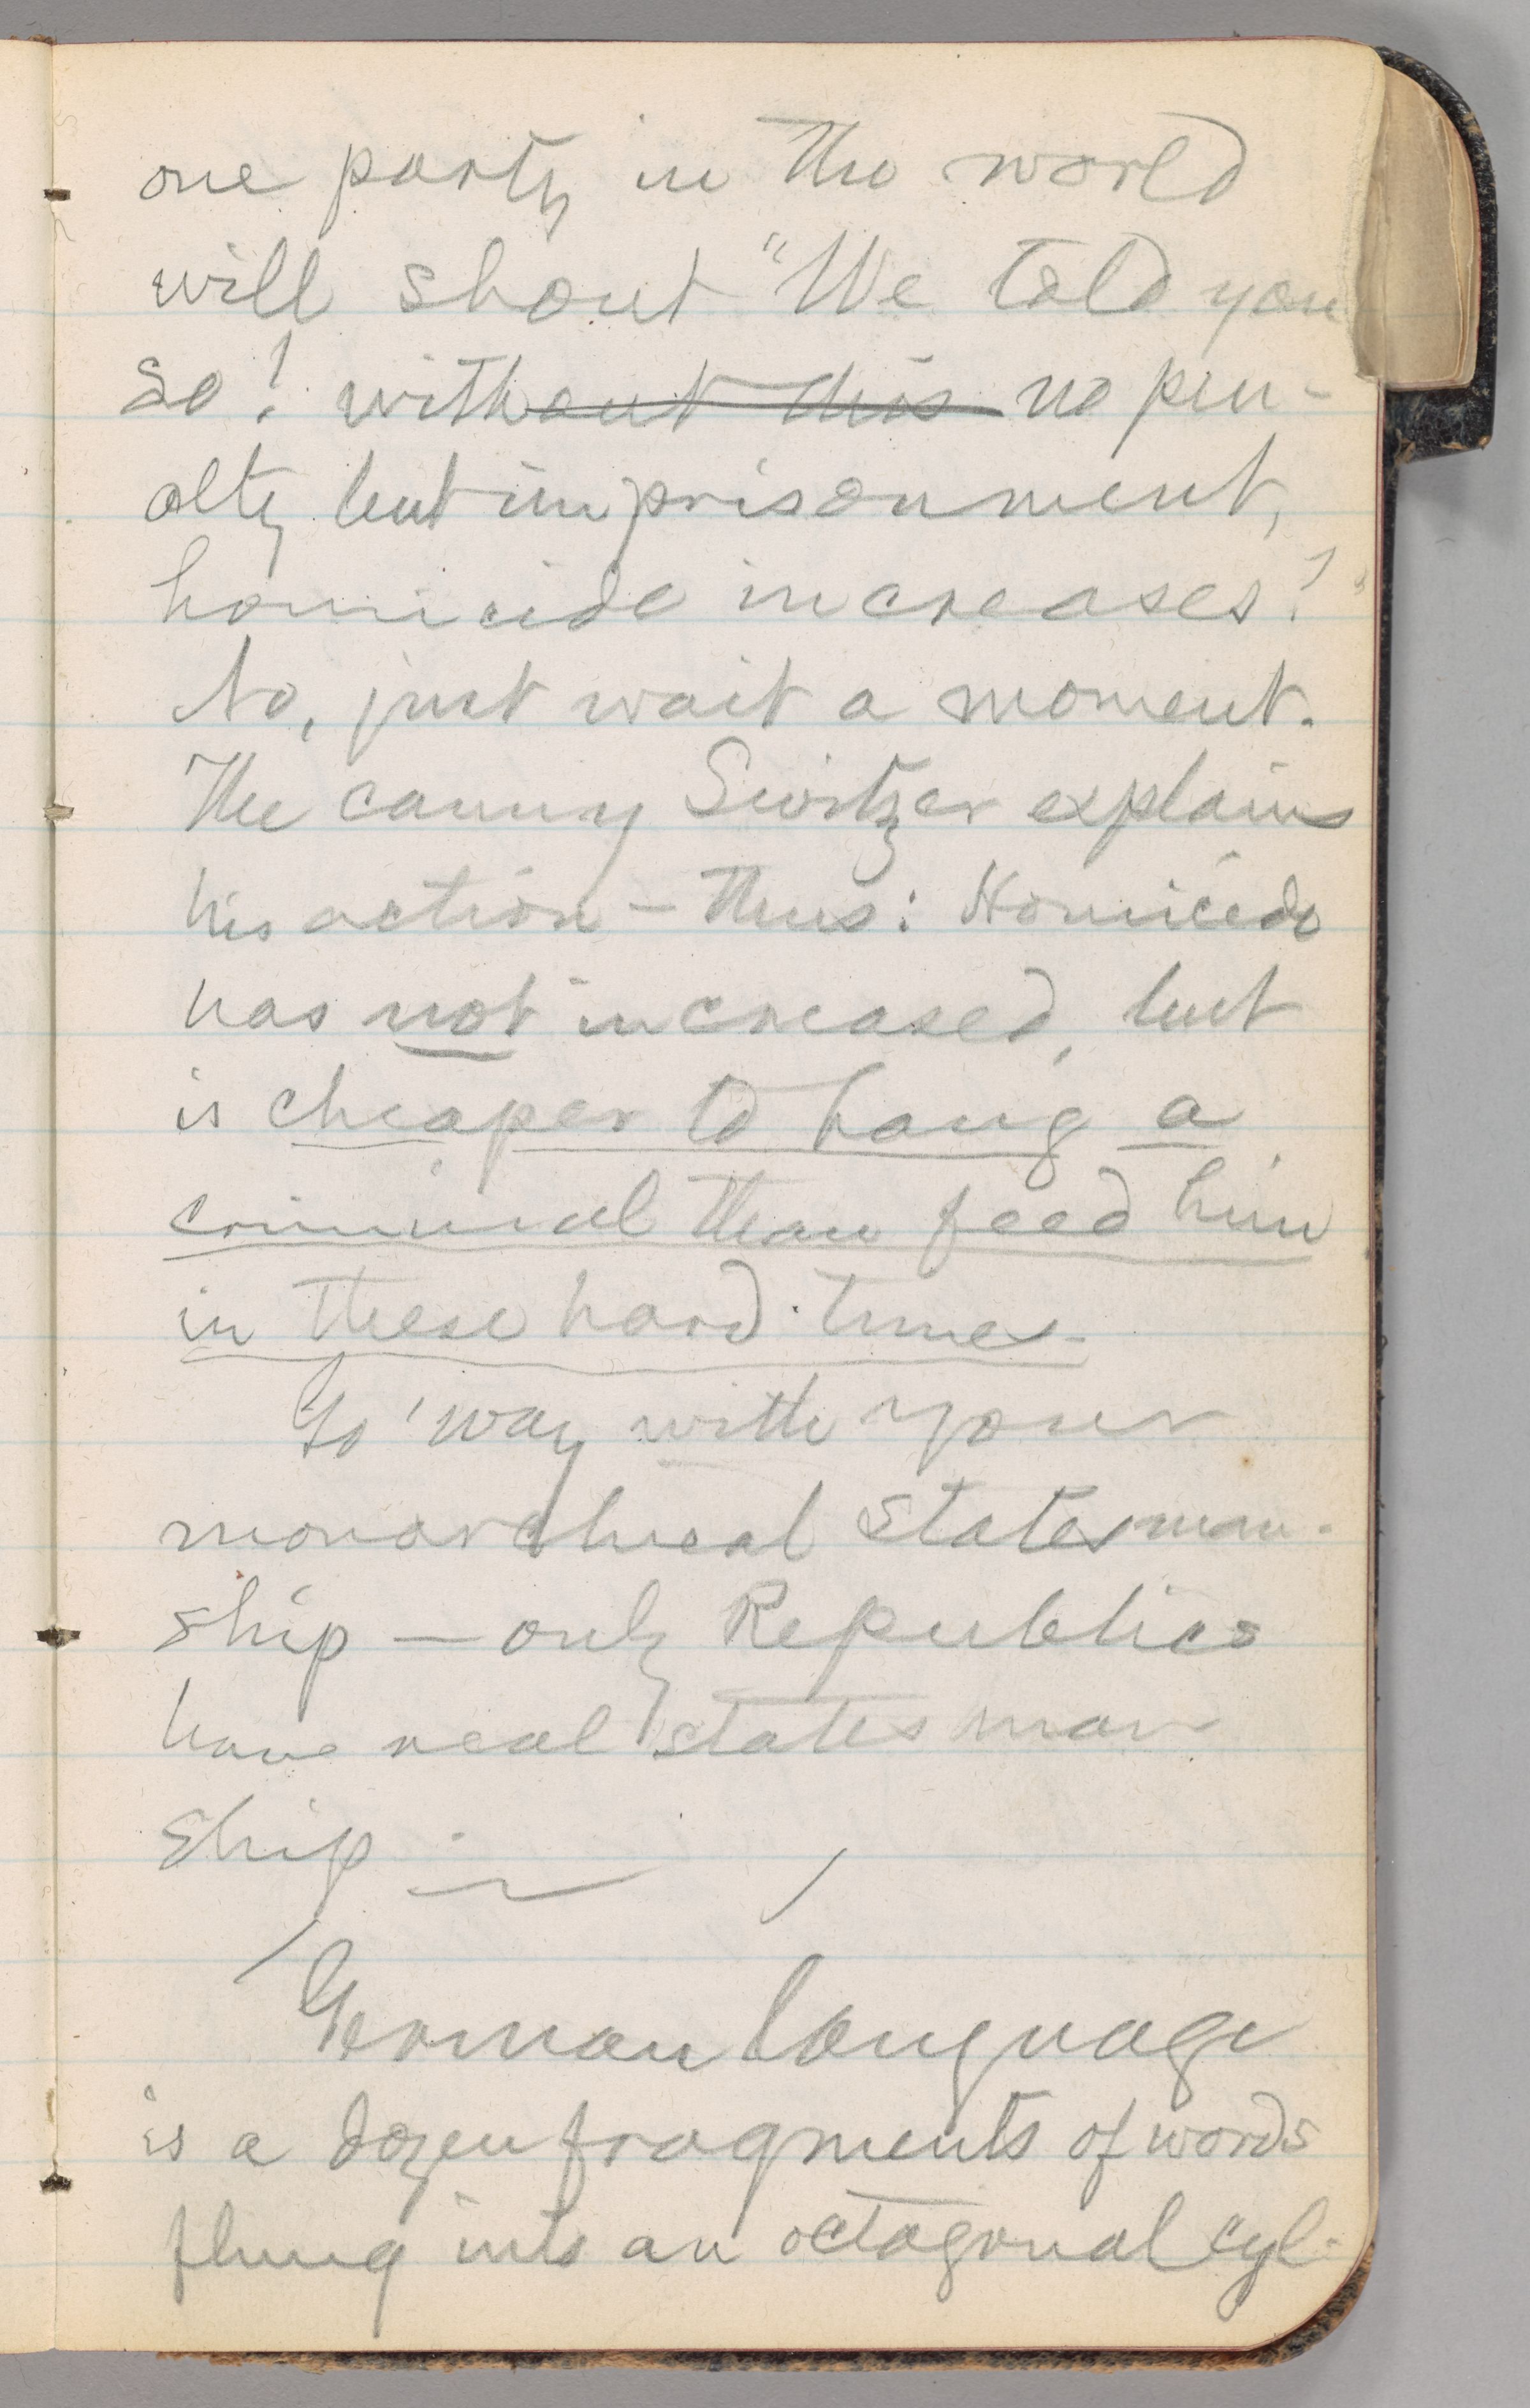 one party in the world
will shout "We told you
so! without this no pen-
alty but imprisonment,
homicide increases!"
No, just wait a moment.
The canny Switzer explains
his action – thus: Homicide
has not increased, but
is cheaper to hang a
criminal than feed him
in these hard times.
Go 'way with your
monarchical statesman-
ship — only Republics
have real statesman
ship.
German language
is a dozen fragments of words
flung into an octagonal cyl-